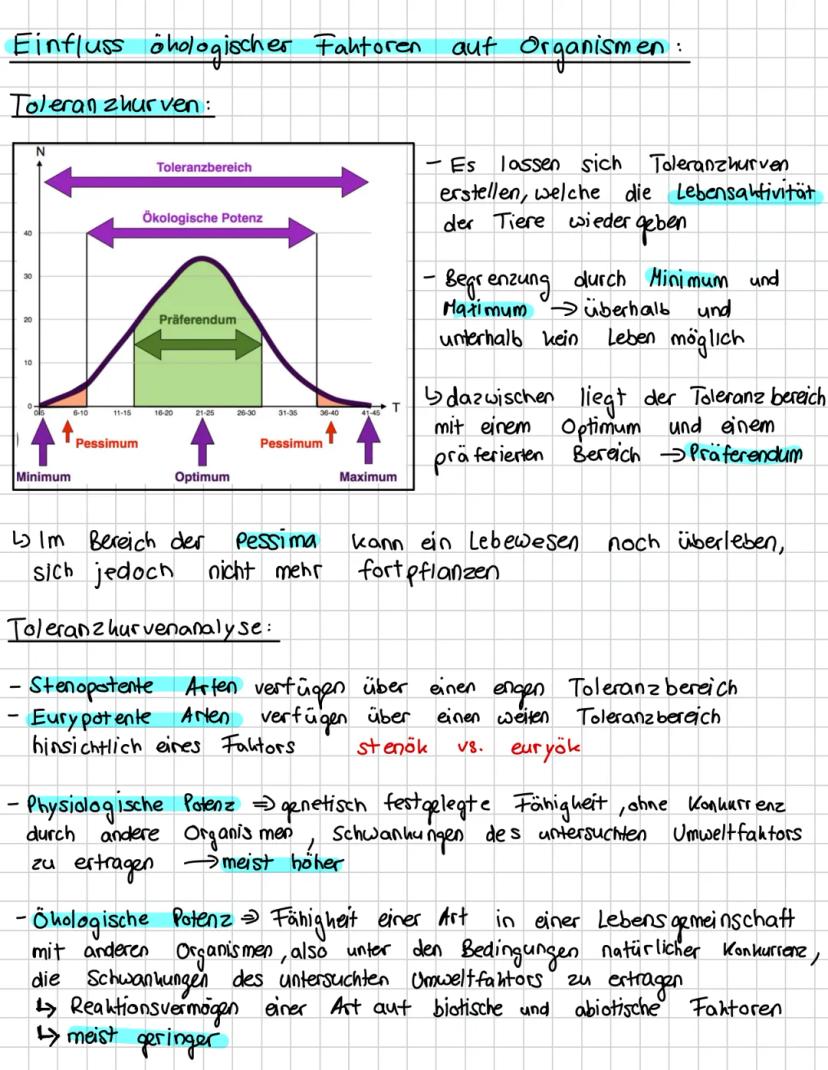 Einfluss ökologischer Faktoren auf Organismen:
Toleranzkurven:
N
Toleranzbereich
Ökologische Potenz
40
30
20
10
0
Präferendum
0-5 6-10 11-15 16-20 21-25 26-30 31-35 36-40 41-45 T
Pessimum Pessimum
Minimum Optimum Maximum
- Es lassen sich Toleranzkurven
erstellen, welche die Lebensaktivität
der Tiere wieder geben
- Begrenzung durch Minimum und
Maximum → überhalb und
unterhalb kein Leben möglich
↳ dazwischen liegt der Toleranzbereich
mit einem Optimum und einem
präferierten Bereich → Präferendum
↳ Im Bereich der Pessima kann ein Lebewesen noch überleben,
sich jedoch nicht mehr fortpflanzen
Toleranzkurvenanalyse:
- Stenopotente Arten verfügen über einen engen Toleranzbereich
- Eurypotente Arten verfügen über einen weiten Toleranzbereich
hinsichtlich eines Faktors stenök vs. euryök
- Physiologische Potenz ⇒ genetisch festgelegte Fähigkeit, ohne Konkurrenz
durch andere Organismen, Schwankungen des untersuchten Umweltfaktors
zu ertragen → meist höher
- Ökologische Potenz ⇒ Fähigkeit einer Art in einer Lebensgemeinschaft
mit anderen Organismen, also unter den Bedingungen natürlicher Konkurrenz,
die Schwankungen des untersuchten Umweltfaktors zu ertragen
↳ Reaktionsvermögen einer Art auf biotische und abiotische Faktoren
↳ meist geringer